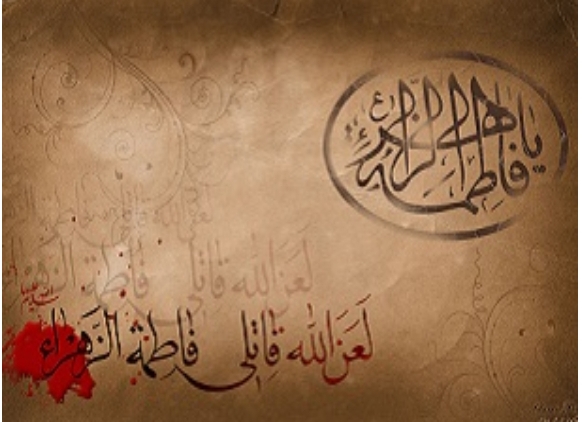 يا فاطمة الزهراء
لعن الله قاتلي فاطمة الزهراء
لَعَنَ اللّه قٰاتِلی فٰاطمَة الزَهرٰاء
سلام الله علیها
لَعَنَ اللّه قٰاتِلی فٰاطِمَة الزَهرٰاء